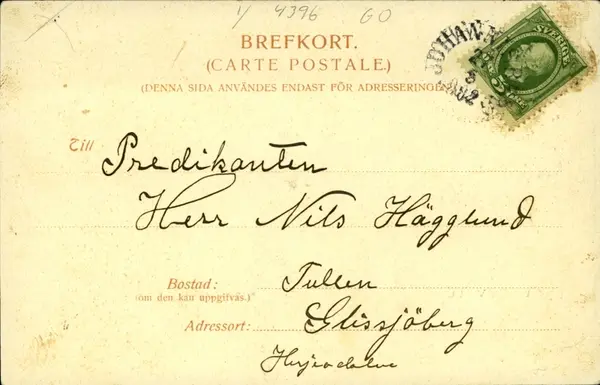 1/ 4396 60
BREFKORT.
(CARTE POSTALE.)
(DENNA SIDA ANVÄNDES ENDAST FÖR ADRESSERINGEN
SVERIGE
5
Till Predikanten
Herr Nils Hägglund
Bostad: Tullen
(om den kan uppgifvas.)
Adressort: Glissjöberg
Herjeodalen